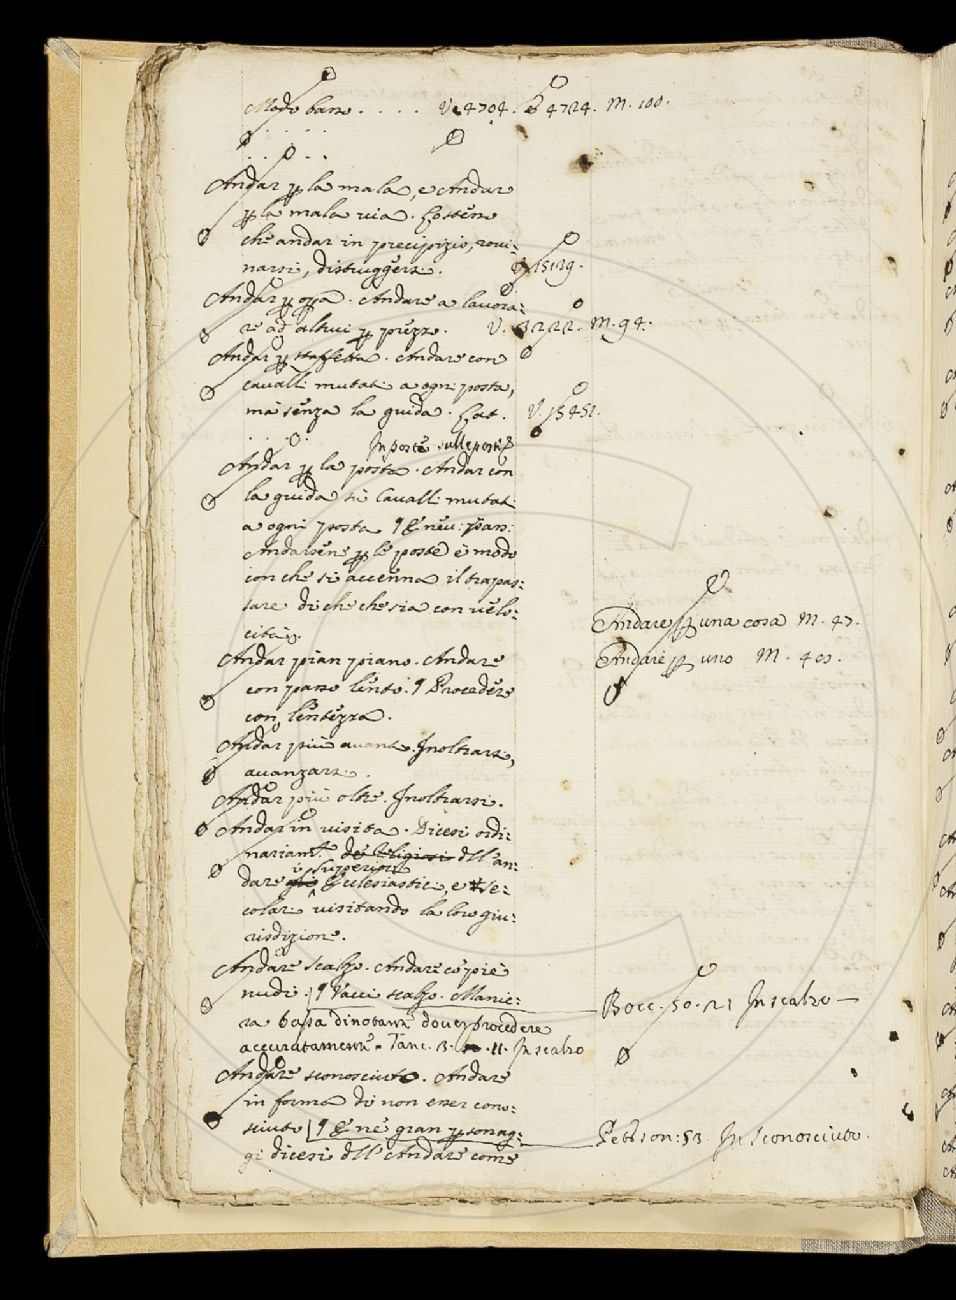 Modo basso . . . . . V. 4704. e 4724. M. 100.
Andar ꝑ la mala, e Andare
ꝑ la mala via.
che andar in precipizio, rovi:
narsi, distruggersi. 15139.
Andar ꝑ opa. Andare a lavora:
re ad altrui ꝑ prezzo. V. 3222. M. 94.
Andar ꝑ staffetta. Andare con
cavalli mutati a ogni posta,
ma senza la guida. V. 15451.
In poste sulle poste
Andar ꝑ la posta. Andar con
la guida su Cavalli mutati
a ogni posta ¶
Andarsene ꝑ le poste è modo
con che si accenna il trapas:
sare di che che sia con velo:
cità.
Andare ꝑ una cosa M. 47.
Andare ꝑ uno M.
Andar pian piano. Andare
con passo lento. ¶ Procedere
con lentezza.
Andar più avanti. Inoltrarsi,
avanzarsi.
Andar più oltre. Inoltrarsi.
Andar in visita. Dicesi ordi:
nariamte de Religiosi dell'an:
i Superiori
dare Eclesiastici, e se:
colari visitando la loro giu:
risdizione.
Andare scalzo. Andare co' piè
nudi. ¶ Vacci scalzo. Manie: Bocc. 50. 21 In scalzo
ra bassa dinotante dover procedere
accuratamente = Tanc. 3. 11. In scalzo
Andare sconosciuto. Andare
in forma di non esser cono:
sciuto ¶ E ne gran ꝑsonag: Petr son: 53. In sconosciuto.
gi dicesi dell'Andare come